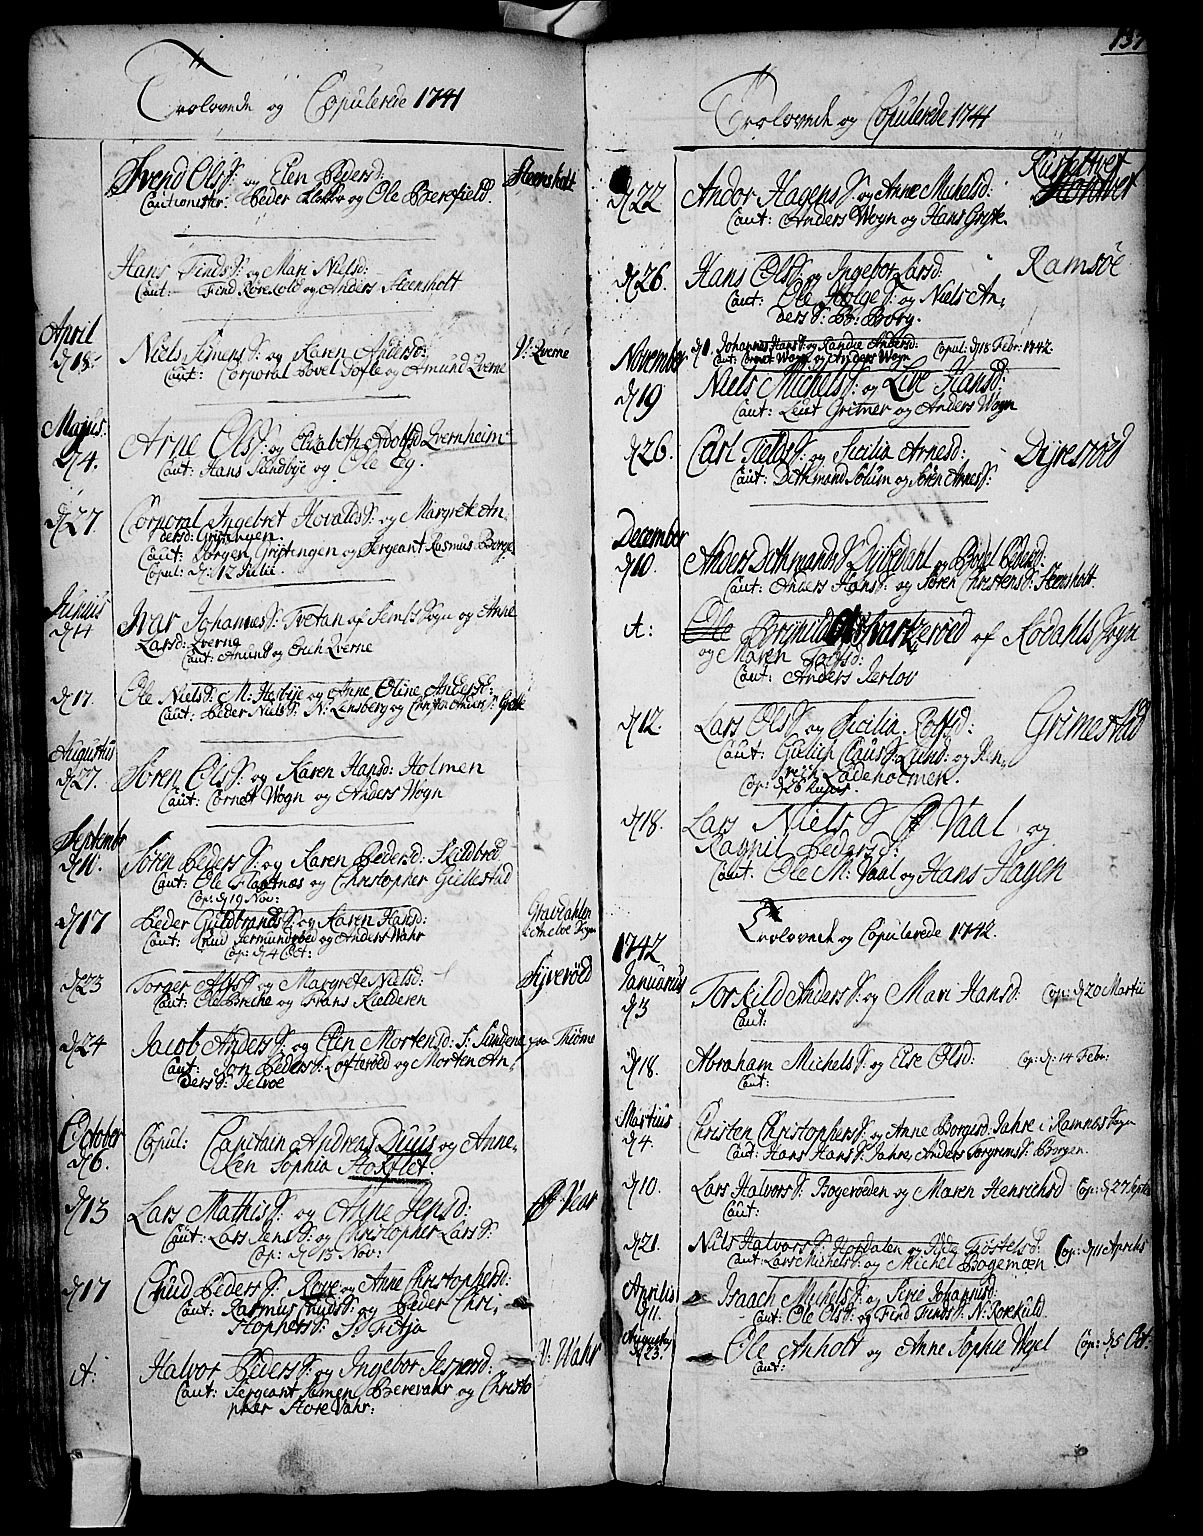 Trolovede og Copulerede 1741
Svend Ols S: og Elen Peders d: Steensholt
Cautionister: Peder Klokker og Ole Bærefield.
Hans Finds S: og Mari Niels d:
Caut: Find Rorekold og Anders Steensholt
April
d 18. Niels Simens S: og Karen Anders d: V: Qverne
Caut: Corporal Povel Tofte og Amund Qverne
Majus.
d 4. Arne Ols S: og Elizabeth Adolfsd Qvernheim
Caut: Hans Sandbye og Ole Eg.
d 27. Corporal Ingebret Hovalds S: og Margrete An,
dersd: Grytingen.
Caut: Jørgen Grytingen og Sergeant Rasmus Berge
Copul: d: 12 Julii.
Junius
d 4 Ivar Johannes S: Tvetan af Sems Sogn og Anne
Larsd: Qverne
Caut: Amund og Erich Qverne
d 17. Ole Niels S: M: Hesbye og Anne Oline Anders d:
Caut: Peder Niels S: N: Lensberg og Christen Anders S:
Augustus
d 27. Søren Ols S: og Karen Hans d: Holmen
Caut: Cornet Wogn og Anders Wogn
Septembr
d 11. Søren Peders S: og Karen Peders d: Skildbred
Caut: Ole Flaatnæs og Christopher Gullestad
Cop: d 19 Nov:
d 17 Peder Guldbrands S: og Karen Hans d: Gravdahlen
Caut: Cnud Jermundrød og Anders Wahr
Cop: d 4 Oct:
d 23 Torger Abs S: og Margrete Niels d: Syverød
Caut: Ole Brehe og Frans Kielderen
d 24 Jacob Anders S: og Elen Mortens d: S: Sandene paa Thiøme
Caut: Jon Peders S: Lofterød og Morten An,
ders S: Jelvoe
October
d 6. Copul: Capitain Andreas Duus og Anne
Len Sophia
d 13 Lars Mathis S: og Anne Jens d: Vear
Caut: Lars Jens S: og Christopher Lars S:
Cop: d 15 Nov:
d 17 Cnud Peders S: Rove og Anne Christophers d:
Caut: Rasmus Cnuds S: og Peder Chri,
stophers S:
A: Halvor Peders S: og Ingebor Jespers d: V: Wahr
Caut: Sergeant Simen Berevahr og Christo
pher Store Vahr:
137
Trolovede og Copulerede 1741
d 22 Andor Hagens S: og Anne Michels d:
Caut: Anders Wogn og Hans Gryte.
d 26. Hans Ols S: og Ingebor Lars d: Ramsøe
Caut: Ole Helge S: og Niels An,
ders S: Bø: Borg.
November d 1. Johannes Hans S: og Randie Anders d: Copul: d 18 Febr: 1742.
Caut: Cornet Wogn og Anders Wogn
d 19 Niels Michels S: og Live Hans d:
Caut: Leut Gritner og Anders Wogn
d 26. Carl Fields S: og Sicilia Arnes d: Dyresrød
Caut: Dethmand Solum og Søren Arnes S:
December
d 10. Anders Dethmands S: Dybedahl og Bodel Peders d:
Caut: Anders Hans S: og Søren Christens S: Steensholt
A: Ole Brinild Svartzerød af Rodahls Sogn
og Maren Tolfs d:
Caut: Anders Serlov
d 12. Lars Ols S: og Sicilia Rolfs d: Grimestad
Caut: Gulich Claus S: Lund: og An,
dreas Ladeholmen.
Cop: d 26 hujus.
d 18. Lars Niels S: Vaal og
Ragnil Peders d:
Caut: Ole M: Vaal og Hans Hagen
Trolovede og Copulerede 1742.
1742
Januarius
d 3 Torkild Anders S: og Mari Hans d: Cop: d 20 Martii
Caut:
d 18. Abraham Michels S: og Else Ols d: Cop: d: 14 Febr:
Caut:
Martius
d 4. Christen Christophers S: og Anne Borgers d: Jahre i Ramnæs Sogn
Caut: Hans Hans S: Jahre, Anders Torgrims S: Borgen.
d 10. Lars Halvors S: Bogerøden og Maren Henrichs d Cop: d 27
Caut:
d 21. Nils Halvors S: Hordalen og Trøstels d: Cop: d 11 Aprilis
Caut: Lars Michels S: og Michel Bogemoen
Aprilis
d 11. Isaach Michels S: og Sirie Johannis d:
Caut: Ole Ols S: og Find Finds S: N: Rorekuld
Augusty
d 23. Ole Anholt og Anne Sophia Wegel Cop: d 5 Oct:
Caut: